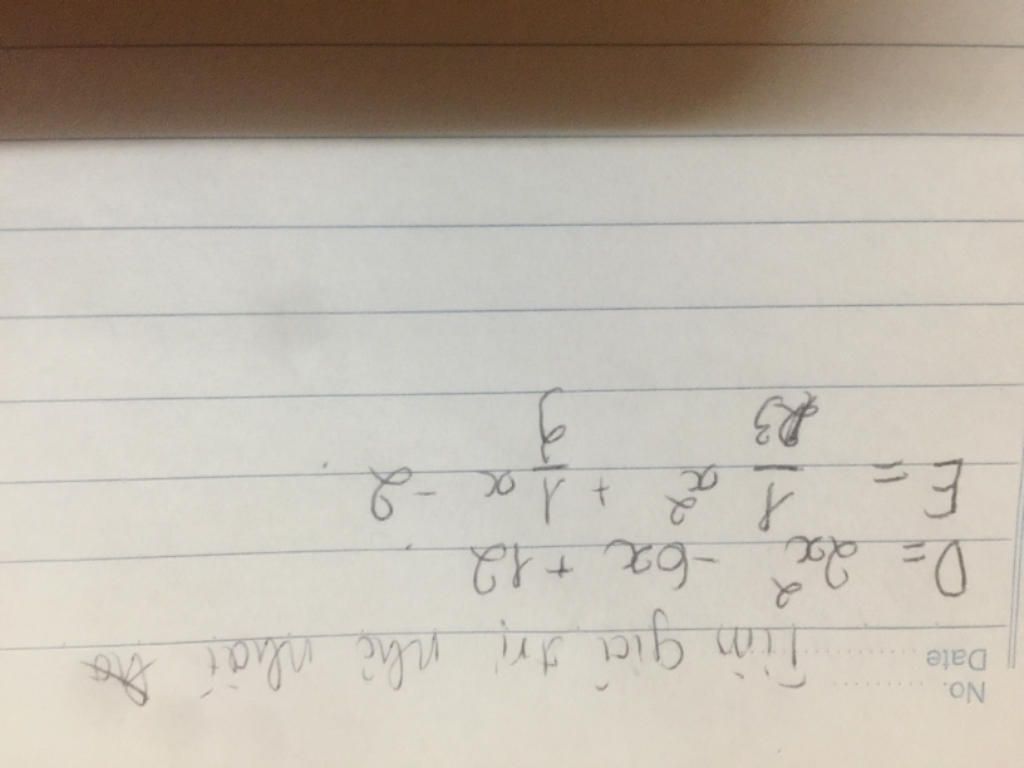 No.
Date
Tìm giá trị nhỏ nhất
D = 2x² - 6x + 12
E = 1/3 x² + 1/9 x - 2